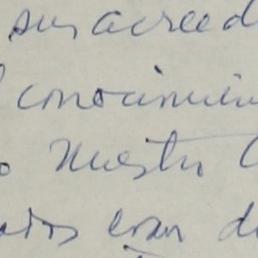 sus acreed
conocimien
o Nuestro
atos eran d